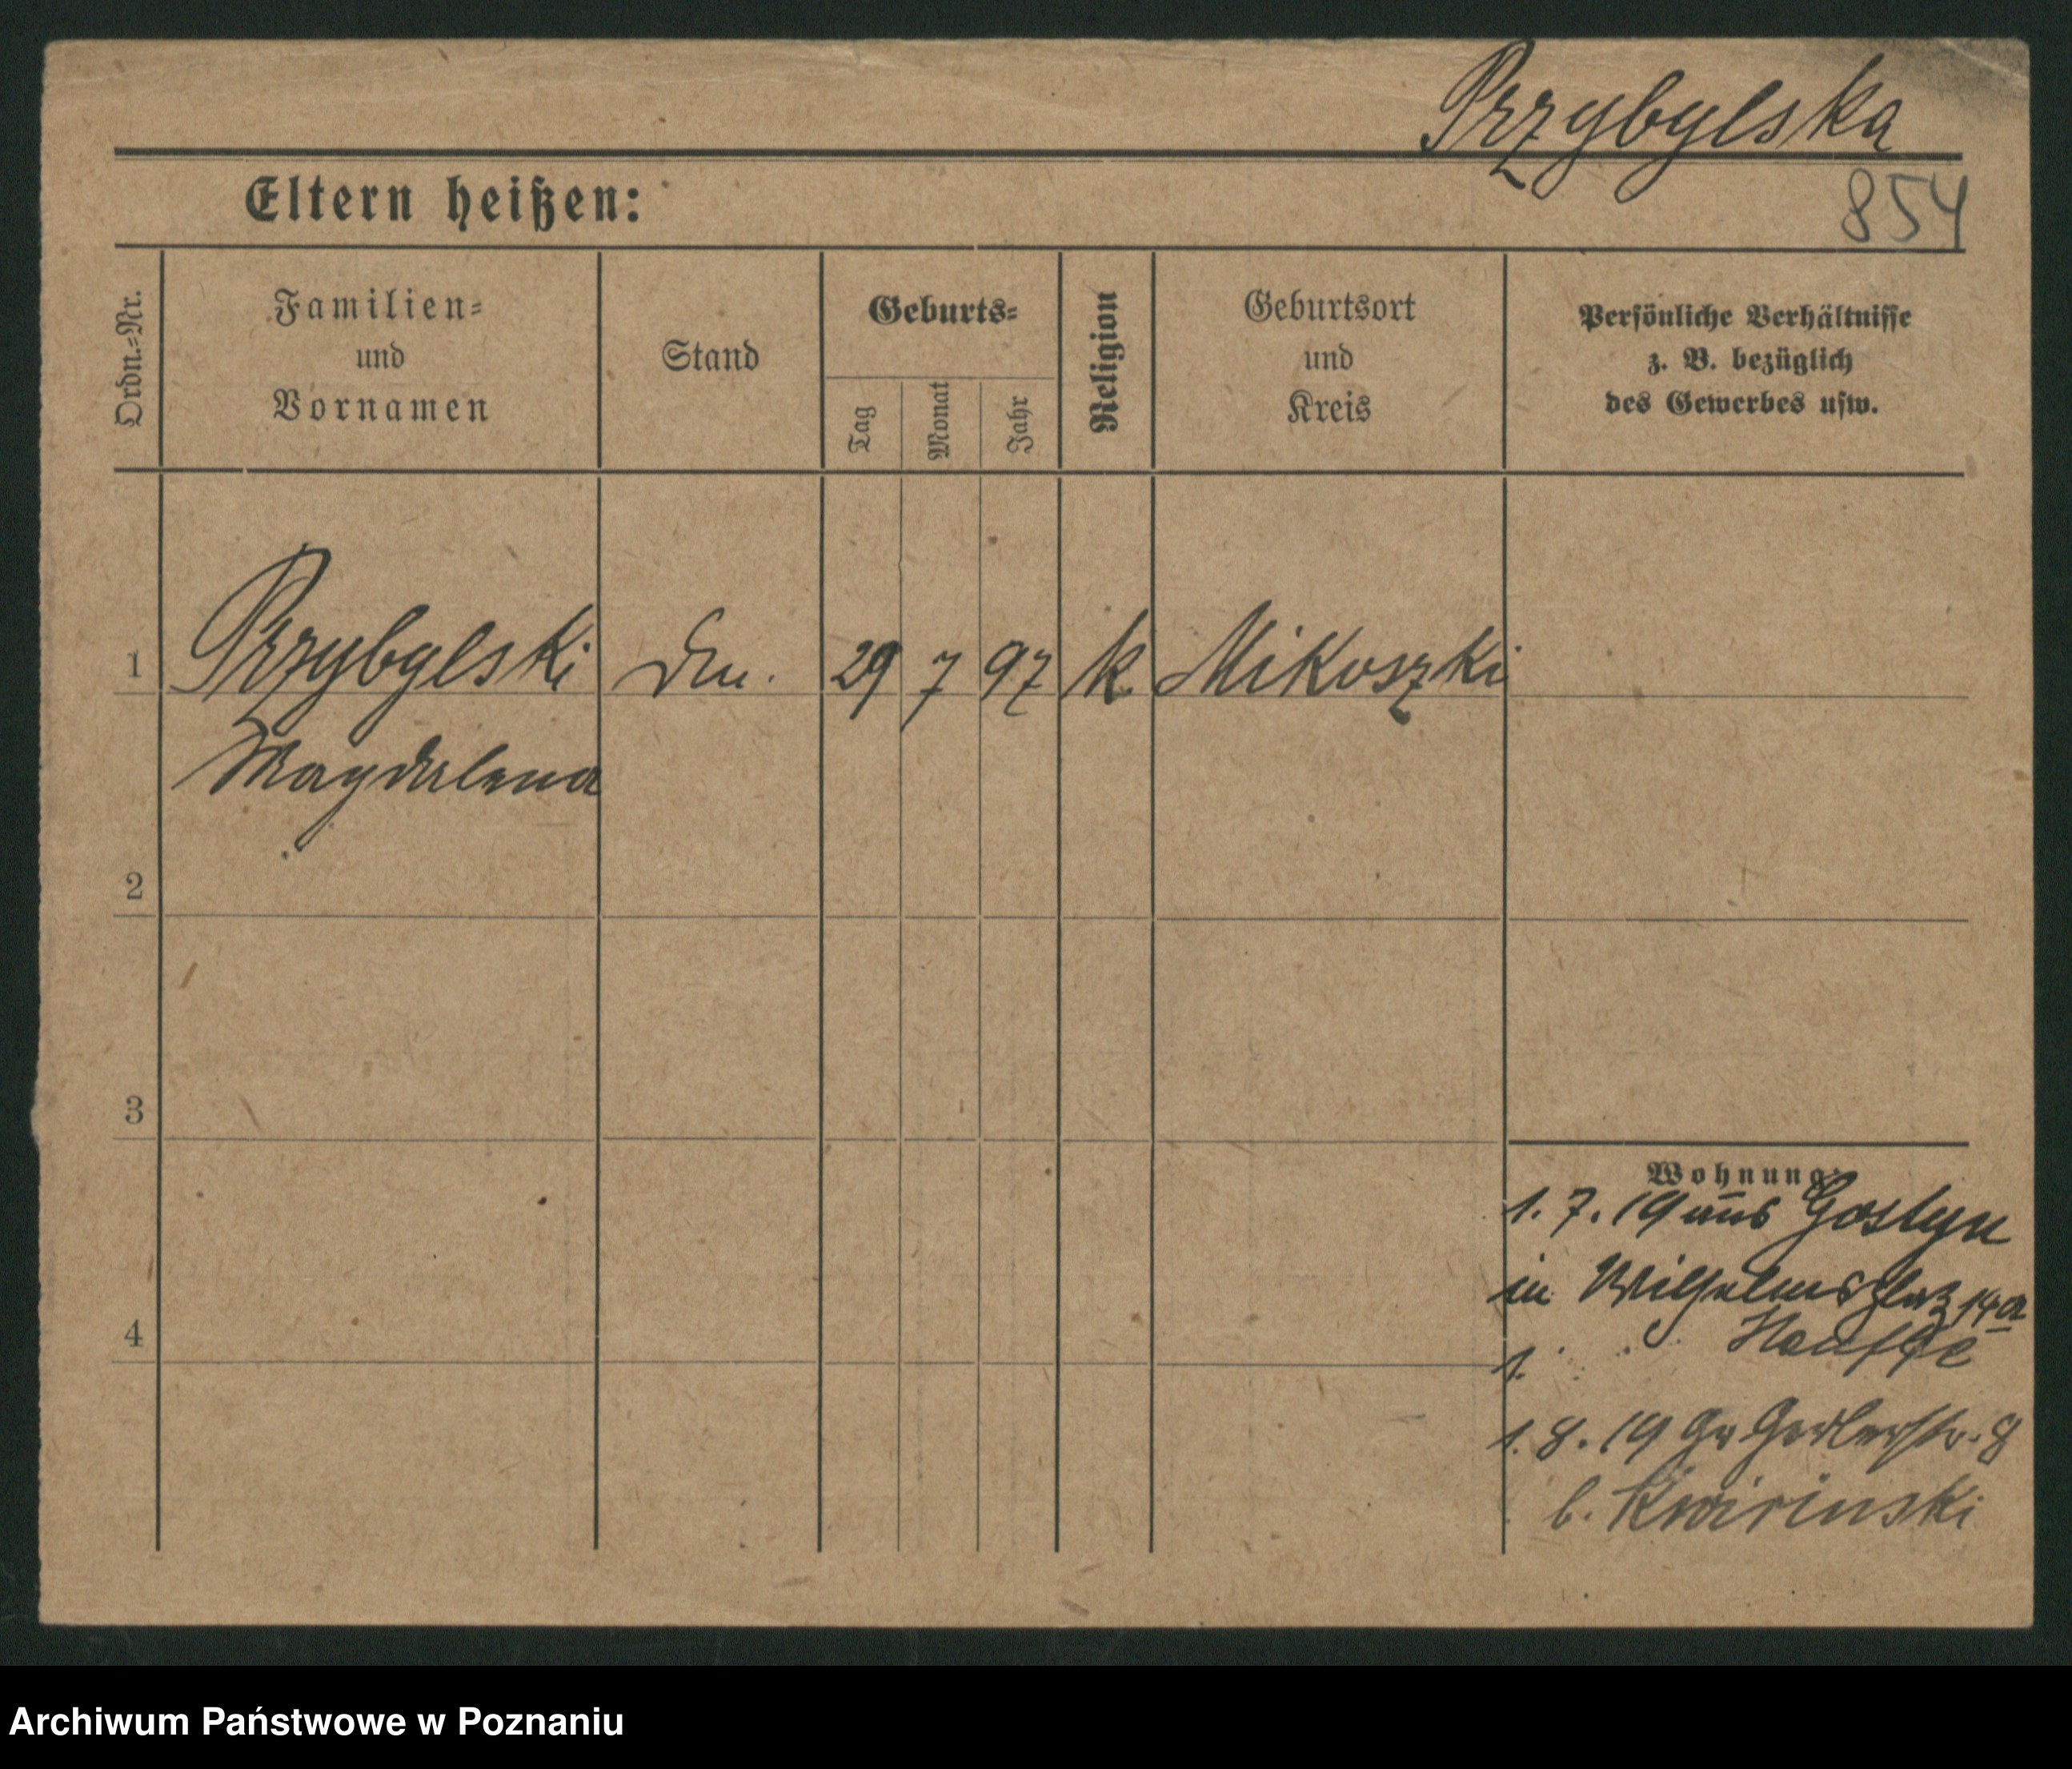 Przybylska
Eltern heißen:
854
Ordn.=Nr.
Familien=
und
Vornamen
Stand
Geburts=
Tag
Monat
Jahr
Religion
Geburtsort
und
Kreis
Persönliche Verhältnisse
z. B. bezüglich
des Gewerbes usw.
1 Przybylski 29 7 97 k. Mikoszki
Magdalena
2
3
4
Wohnung:
1. 7. 19 aus Gostyn
in Wilhelmsplatz 14a
1.
1. 8. 19 Gr Gerberstr. 8
b.
Archiwum Państwowe w Poznaniu